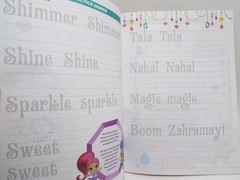 Shimmer Shimmer
Shine Shine
Sparkle sparkle
Sweet
sweet
Tala Tala
Nahal Nahal
Magic magic
Boom Zahramay!